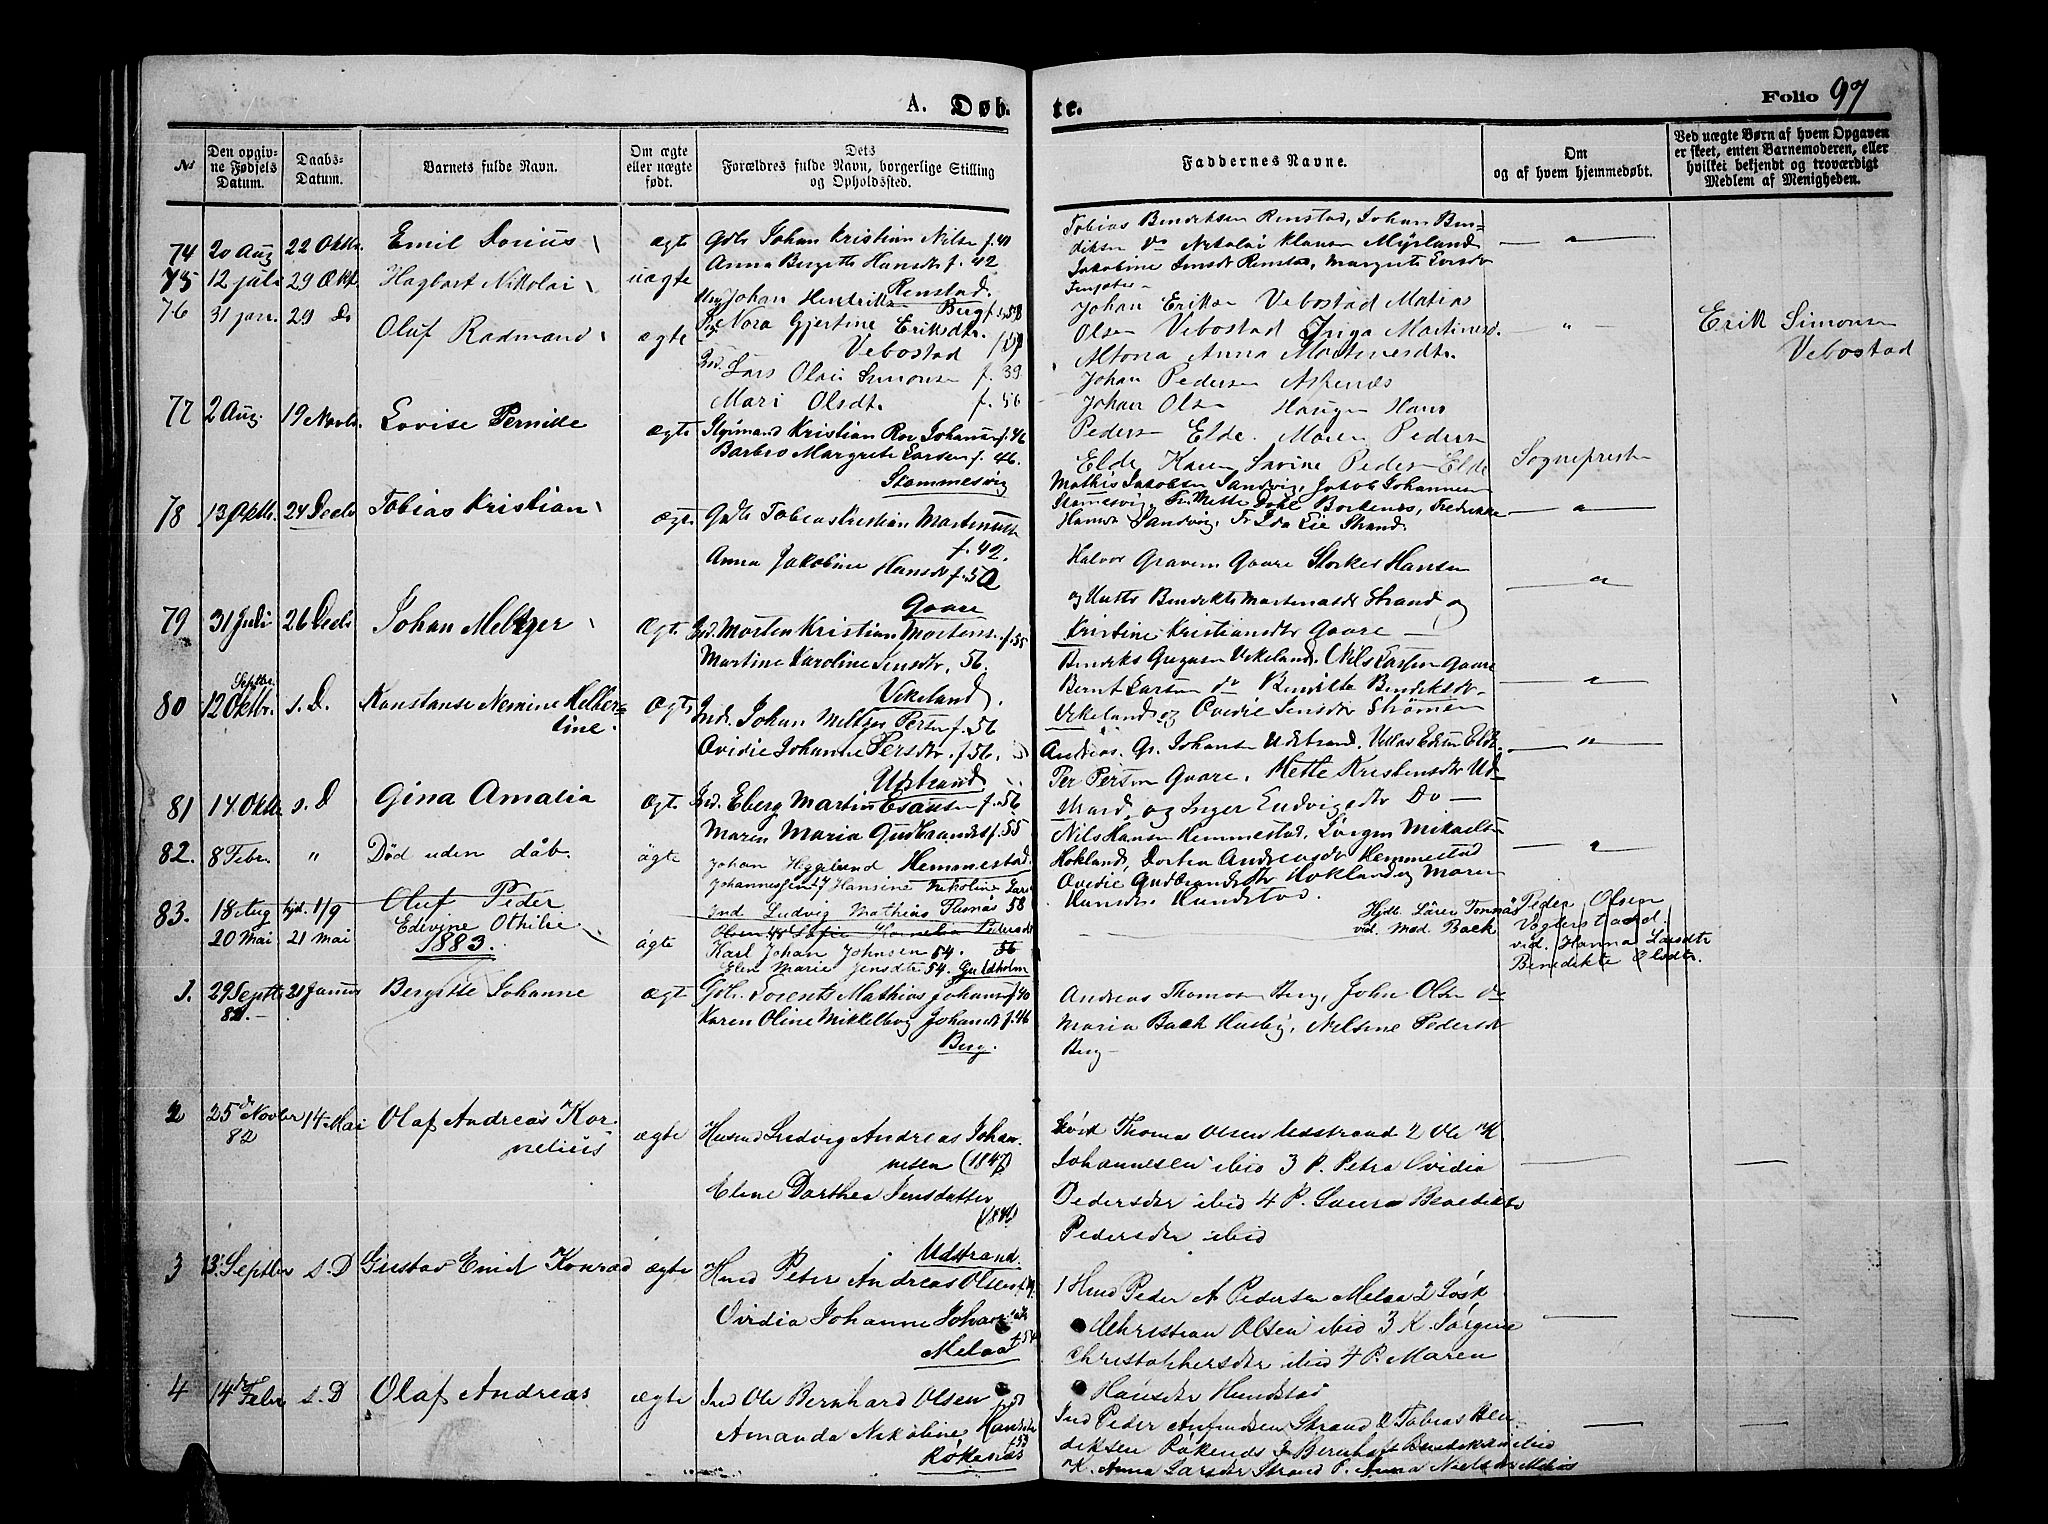 A. Døb- te. Folio 97
No
Den opgivne Fødsels Datum.
Daabs-Datum.
Barnets fulde Navn.
Om ægte eller uægte født.
Dets Forældres fulde Navn, borgerlige Stilling og Opholdssted.
Faddernes Navne.
Om og af hvem hjemmedøbt.
Ved uægte Børn af hvem Opgaven er skeet, enten Barnemoderen, eller hvilket bekjendt og troværdigt Medlem af Menigheden.
74 20 Aug 22 Oktbr. Emil Dorius ægte
Johan Kristian Nilsen f. 40
Anna Bergitte Hansdtr f. 42
Renstad.
Tobias Bendiksen Renstad, Johan Ben-
diksen Do Nikolai Klausen Myrland
Jakobine Jensdr Renstad, Margrete
75 12 juli 29 Okt. Hagbart Nikolai uægte
Johan Hendriksen Berg f. 58
Nora Gjertine Eriksdtr.
Vebostad
Johan Eriksen Vebostad Matias
Olsen Vebostad Inga Martinesd.
Altona Anna Martinesdtr.
Erik Simonsen
Vebostad
76 31 jan. 29 Do Oluf Radmand ægte
Lars Olai Simonsen f. 39
Mari Olsdtr. f. 56
Johan Pedersen Aspenæs
Johan Olsen Haugen Hans
Pedersen Elde. Maren Pedersen
Elde Karen Savine Pedersen Elde
Sognepresten
77 2 Aug. 19 Novbr. Lovise Pernille ægte
Styrmand Kristian Rov Johansen f. 46
Barbro Margrete Larsen f. 46.
Stammesvig
Mathis Jakobsen Sandvig, Jakob Johannesen
Stamesvig, Fr. Mette Dahl Borkenes, Fredrikke
Hansen Sandvig, Fr Ida Lie Strand.
78 13 Oktbr. 24 Decbr Tobias Kristian ægte
Tobias Cristian Martinussen
f. 42.
Anna Jakobine Hansdr f. 50
Gaare
Halvor Gravem Gaare Storker Hansen
Bendikte Martenasdr Strand og
Kristine Kristiansdtr Gaare
79 31 Juli 26 Decbr Johan Meltzer Ægte.
Ind. Morten Kristian Mortens. f. 55
Martine Karoline Jensdtr, 56.
Vikeland
Vikeland, Nils Larsen Gaare
Bernt Larsen do Bendikte Bendiksdr
Vikeland og Ovidie Jensdtr Strømen
80 12 Septbr. Oktbr. s. D. Konstanse Nemine Helber=
tine.
Ægte
Ind. Johan Meltzer Persen f. 56
Ovidie Johanne Persdtr. f. 56.
Udstrand
Andreas Gr. Johansen Udstrand.
Per Persen Gaare. Mette Kristensdtr Ud-
strand, og Inger Ludvigsdtr Do
81 14 Oktbr s. D Gina Amalia Ægte
Ind. Eberg Martin Esausen f. 56
Maren Maria Gudbrandsd f. 55
Hemmestad.
Nils Hansen Hemmestad, Jørgen Mikaelsen
Hokland, Dortea Andreasdr Hemmestad
Ovidie Gudbrandsdtr Hokland og Maren
Hansdr. Hundstad.
82. 8 Febr. " Død uden dåb. ägte
Johan
Hansine Nikoline
83. 18 Aug hjd. 1/9 Oluf Peder
Ind Ludvig Mathias 58
Peder Olsen
20 Mai 21 Mai Edivine Othilie ägte
Karl Johan Johnsen 54.
Elen Marie Jensdtr 54. Guldholm
Hjdb. Sören Tennäs
vid. Mad. Back
vid. Hanna Larsdtr
Benedikte Olsdtr.
1883.
1. 29 Septbr 82.- 21 Januar Bergitte Johanne ægte
Lorents Mathias Johans. f. 40
Karen Oline Mikkelborg Johansdr f. 46
Berg.
Andreas Thomasen Berg, John Olsen do
Maria Back Husby, Nelsine Pedersdr
Berg-
2 25de Novbr 82 14 Mai Olaf Andreas Kor-
nelius
ægte
Husmd Ludvig Andreas Johan-
nesen (1847)
Eline Dorthea Jensdatter
Udstrand.
Thomas Olsen Udstrand 2 Ole K
Johannesen ibid 3 P. Petra Ovidia
Pedersdtr ibid 4 P. Laura Benedikte
Pedersdtr ibid
3 13 Septbr s. D Gustav Emil Konrad ægte
Husmd Peter Andreas Olsen
Ovidia Johanne
Melaa
1 Husmd Peder A Pedersen Melaa 2 Løsk
Christian Olsen ibid 3 K. Jørgine
Christophersdtr ibid 4 P. Maren
Hansdtr Hundstad
4 14de Febr s. D Olaf Andreas ægte
Ind Ole Bernhard Olsen
Amanda Nikoline
Røkenæs
Ind Peder Anfindsen Strand 2 Tobias Ben-
diksen Røkenes
K. Anna Larsdtr Strand P. Anna